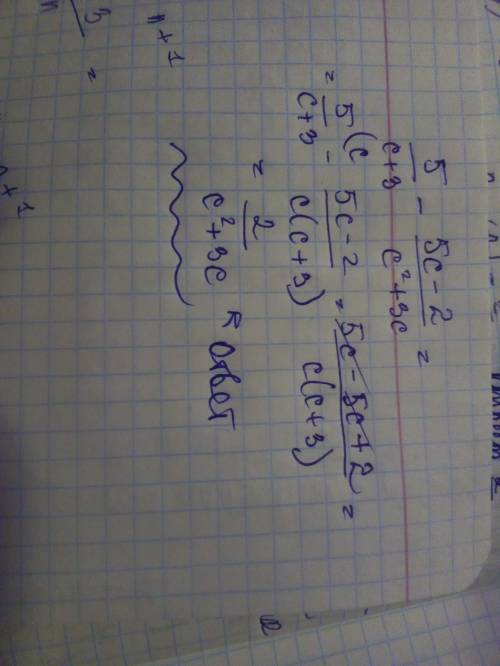 5/(c+3) - (5c-2)/(c²+3c) =
= 5(c/(c+3) - (5c-2)/(c(c+3)) = (5c-5c+2)/(c(c+3)) =
= 2/(c²+3c) ← ответ
3/n =
n+1
n+1